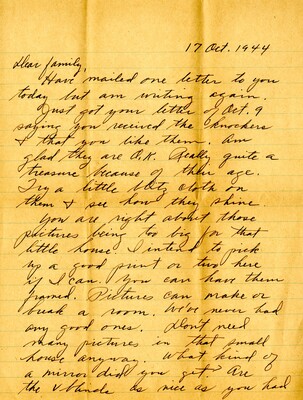 17 Oct. 1944
Dear family,
Have mailed one letter to you
today but am writing again.
Just got your letter of Oct. 9
saying you received the knockers
& that you like them. Am
glad they are O.K. Really quite a
treasure because of their age.
Try a little blitz cloth on
them & see how they shine.
You are right about those
pictures being too big for that
little house. I intend to pick
up a good print or two here
if I can. You can have them
framed. Pictures can make or
break a room. We've never had
any good ones. Don't need
many pictures in that small
house anyway. What kind of
a mirror did you get? Are
the v. blinds as nice as you had